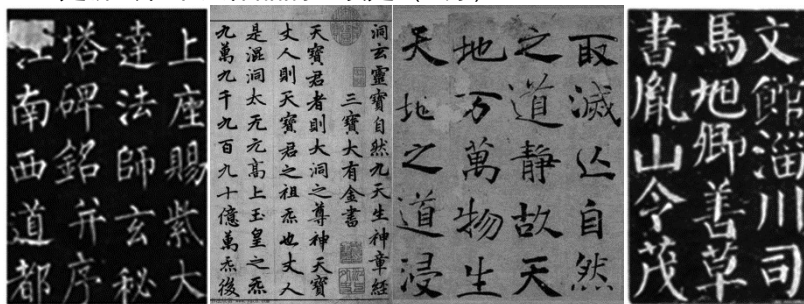 上座賜紫大
達法師玄秘
塔碑銘并序
江南西道都
洞玄靈寶自然九天生神章經
三寶大有金書
天寶君者則大洞之尊神天寶
丈人則天寶君之祖炁也丈人
是混洞太无元高上玉皇之炁
九萬九千九百九十億萬炁後
取滅亾自然
之道靜故天
地万萬物生
天地之道浸
文館淄川司
馬旭卿善草
書胤山令茂